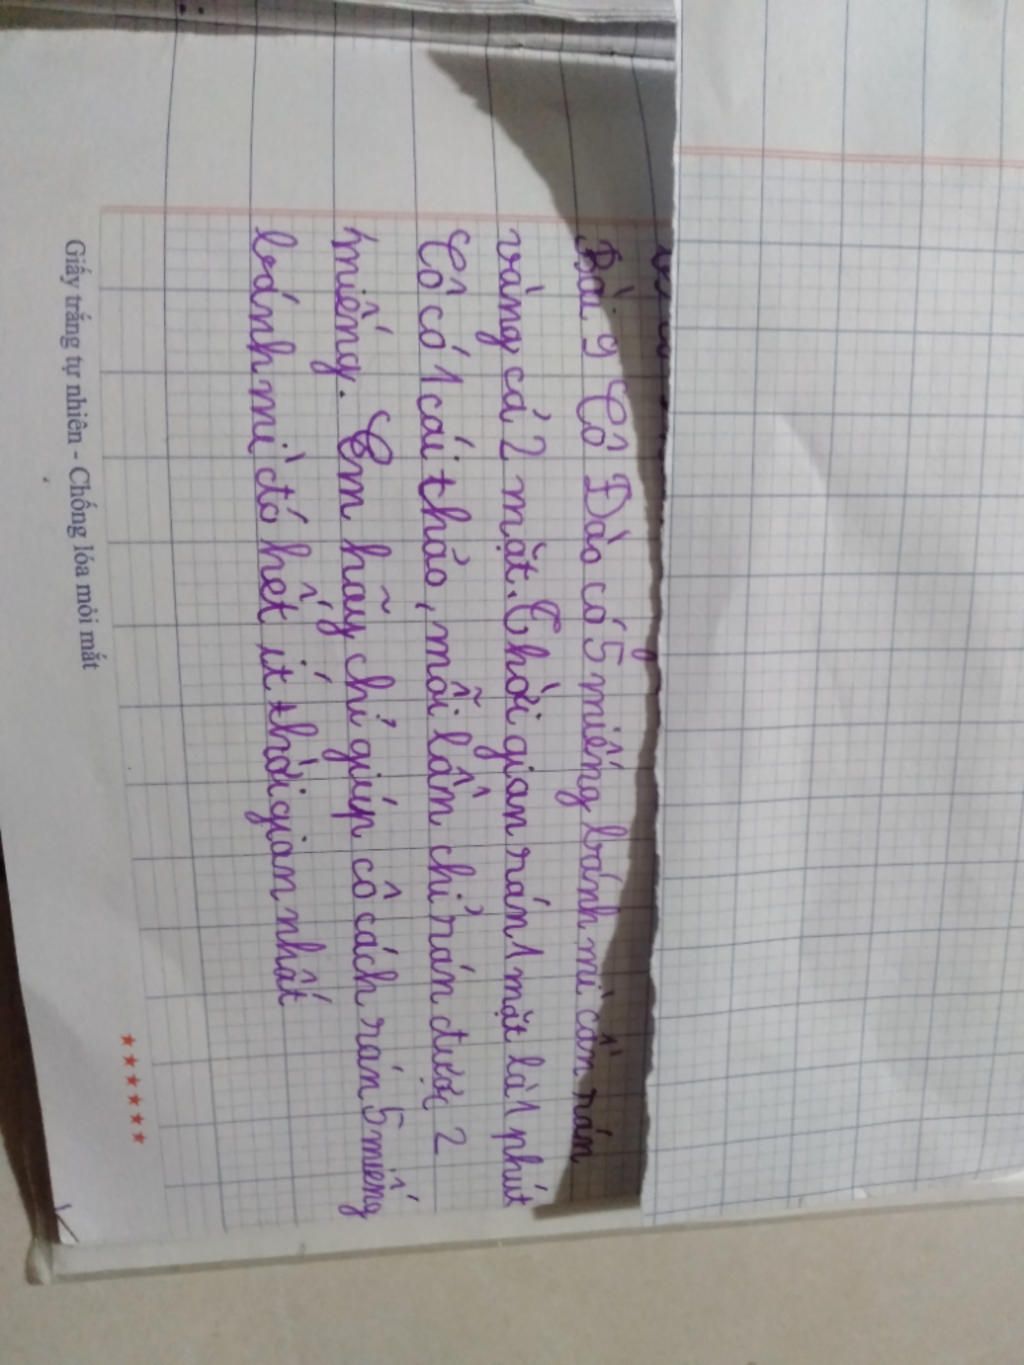 Bài 9 Cô Đào có 5 miếng bánh mì cần rán
vàng cả 2 mặt. Thời gian rán 1 mặt là 1 phút
Cô có 1 cái thảo, mỗi lần chỉ rán được 2
miếng. Em hãy chỉ giúp cô cách rán 5 miếng
bánh mì đó hết ít thời gian nhất
Giấy trắng tự nhiên - Chống lóa mỏi mắt